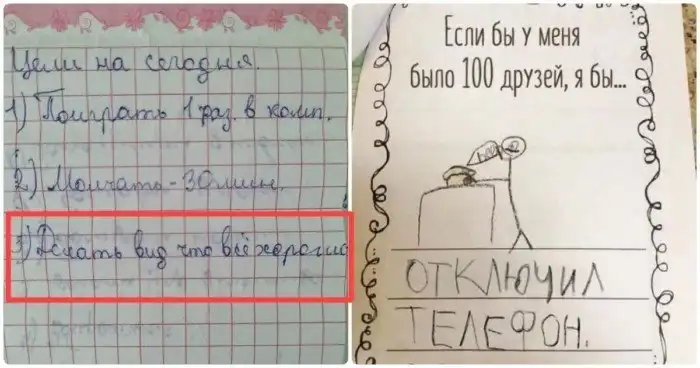 Цели на сегодня.
1) Поиграть 1 раз. в комп.
2) Молчать - 30 мин.
3) Делать вид что всё хорошо
Если бы у меня
было 100 друзей, я бы...
ОТКЛЮЧИЛ
ТЕЛЕФОН.